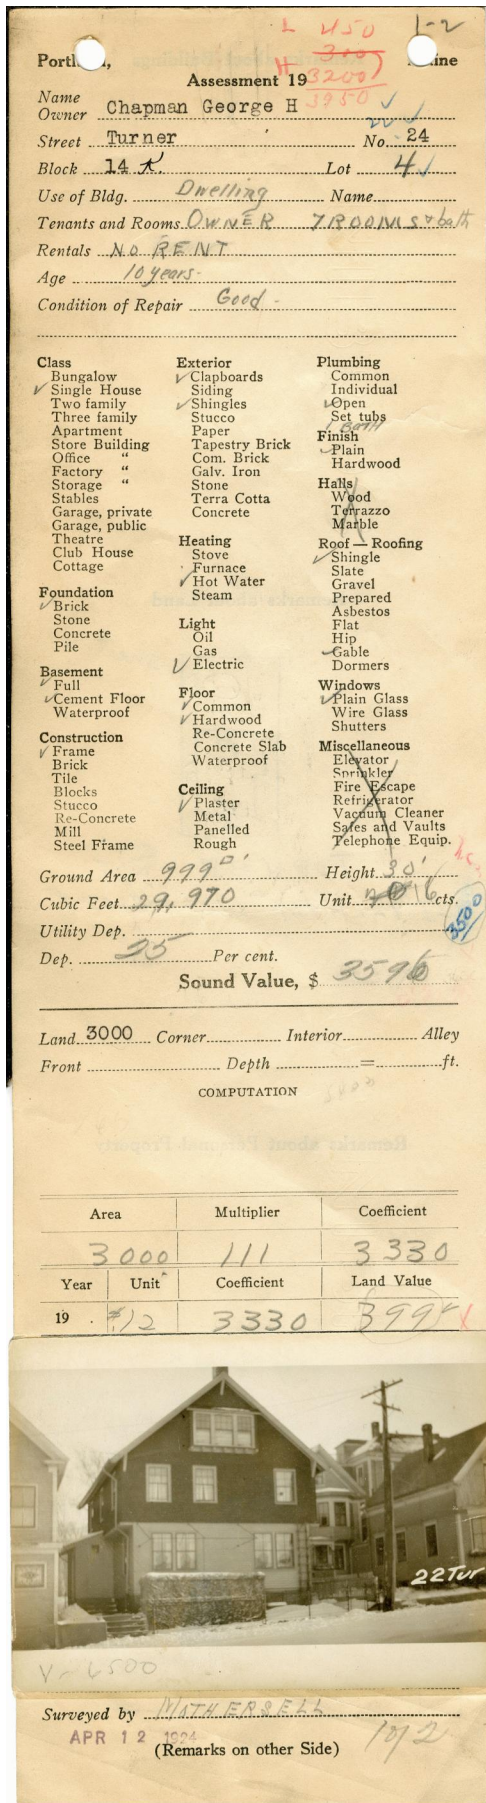 L 450
1-2
300
H 3200
3950
Portl , aine
Assessment 19
Name
Owner Chapman George H
Street Turner No. 24
Block 14 K. Lot 4
Use of Bldg. Dwelling Name
Tenants and Rooms OWNER 7 ROOMS & bath
Rentals NO RENT
Age 10 years-
Condition of Repair Good -
Class
Bungalow
Single House
Two family
Three family
Apartment
Store Building
Office "
Factory "
Storage "
Stables
Garage, private
Garage, public
Theatre
Club House
Cottage
Foundation
Brick
Stone
Concrete
Pile
Basement
Full
Cement Floor
Waterproof
Construction
Frame
Brick
Tile
Blocks
Stucco
Re-Concrete
Mill
Steel Frame
Exterior
Clapboards
Siding
Shingles
Stucco
Paper
Tapestry Brick
Com. Brick
Galv. Iron
Stone
Terra Cotta
Concrete
Heating
Stove
Furnace
Hot Water
Steam
Light
Oil
Gas
Electric
Floor
Common
Hardwood
Re-Concrete
Concrete Slab
Waterproof
Ceiling
Plaster
Metal
Panelled
Rough
Plumbing
Common
Individual
Open
Set tubs
1 BATH
Finish
Plain
Hardwood
Halls
Wood
Terrazzo
Marble
Roof — Roofing
Shingle
Slate
Gravel
Prepared
Asbestos
Flat
Hip
Gable
Dormers
Windows
Plain Glass
Wire Glass
Shutters
Miscellaneous
Elevator
Sprinkler
Fire Escape
Refrigerator
Vacuum Cleaner
Safes and Vaults
Telephone Equip.
Ground Area 999□' Height 30'
Cubic Feet 29,970 Unit 16 cts.
3500
Utility Dep.
Dep. 25 Per cent.
Sound Value, $ 3596
Land 3000 Corner Interior Alley
Front Depth = ft.
COMPUTATION
Area Multiplier Coefficient
3000 111 3330
Year Unit Coefficient Land Value
19 .12 3330 399
22 Tur
V-6500
Surveyed by MOTHERSELL
APR 12 1924
1 of 2
(Remarks on other Side)